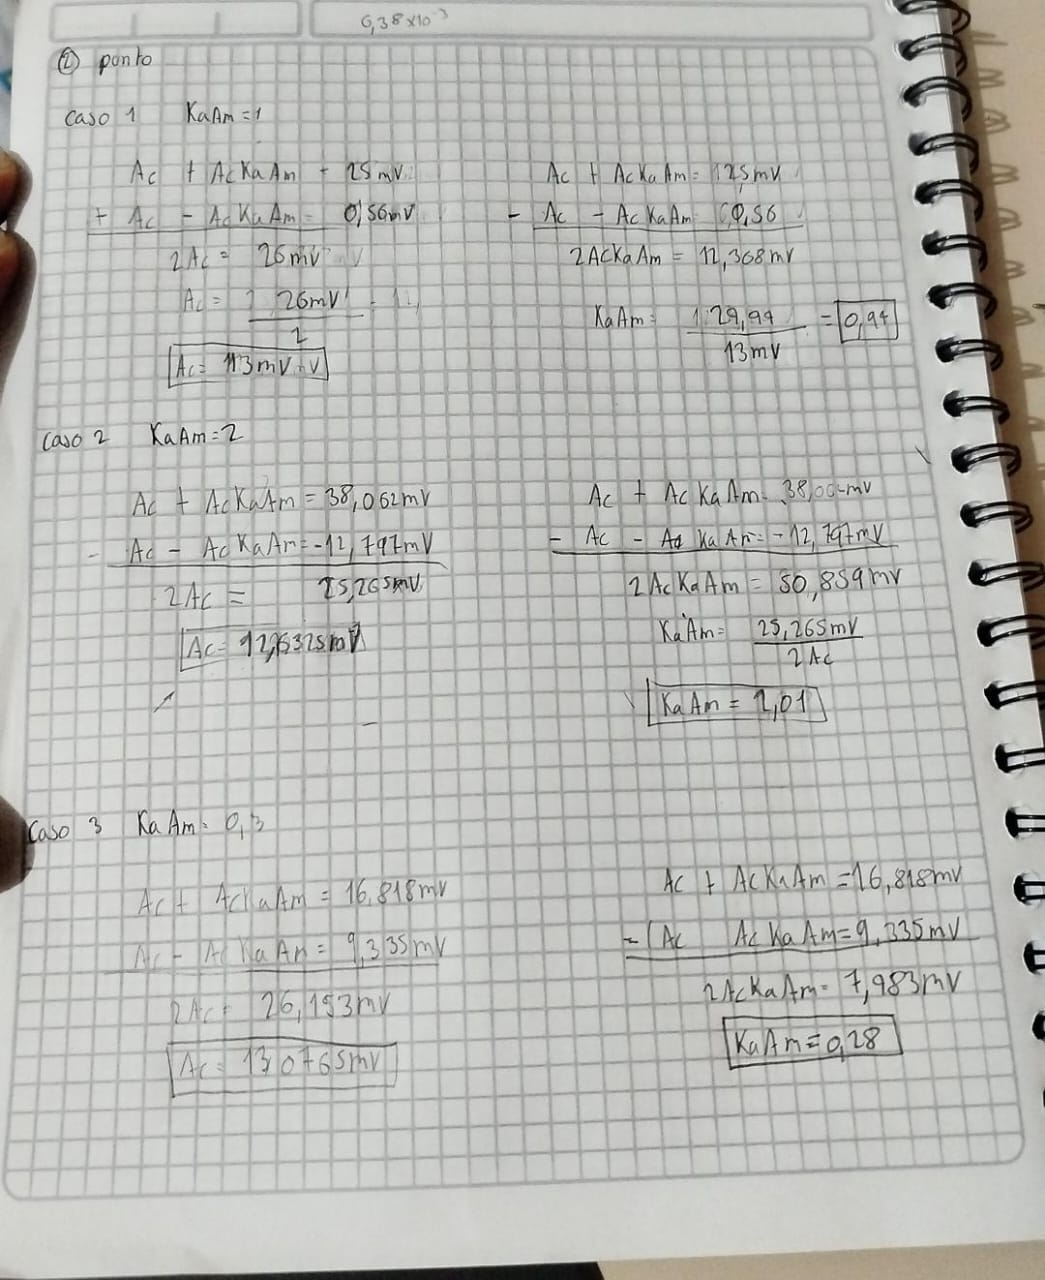 6,38x10⁻³
② ponto
Caso 1 KaAm=1
Ac + AcKaAm = 25mV
+ Ac - AcKaAm = 0,56mV
2Ac = 26mV
Ac = 26mV
2
Ac = 13mV
Ac + AcKaAm = 25mV
- Ac - AcKaAm 0,56
2AcKaAm = 12,368mV
KaAm = = 0,94
13mV
Caso 2 KaAm=2
Ac + AcKaAm = 38,062mV
- Ac - AcKaAm = -12,797mV
2Ac = 25,265mV
Ac = 12,6325mV
Ac + AcKaAm = 38,062mV
- Ac - Ac KaAm = -12,797mV
2AcKaAm = 50,859mV
KaAm = 25,265mV
2Ac
KaAm = 2,01
Caso 3 KaAm = 0,3
Ac + AcKaAm = 16,818mV
Ac - AcKaAm = 9,335mV
2Ac = 26,153mV
Ac = 13,0765mV
Ac + AcKaAm = 16,818mV
- (Ac AcKaAm = 9,335mV
2AcKaAm = 7,983mV
KaAm = 0,28